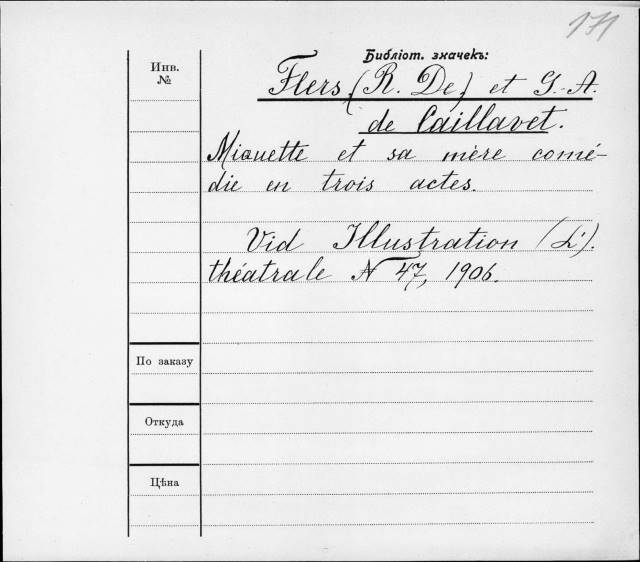 171
Инв.
№
Библіот. значекъ:
Flers (R. De) et G. A.
de Caillavet.
Miquette et sa mère comé-
die en trois actes.
Vid Illustration (L').
théatrale N 47, 1906.
По заказу
Откуда
Цѣна